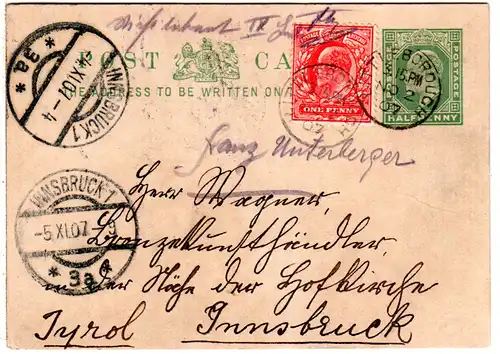 Nicht bekannt IV
POST CARD
THE ADDRESS TO BE WRITTEN ON
ONE PENNY
POSTAGE
HALFPENNY
BOROUGH
15 PM
NO 2
07
INNSBRUCK 1
*3a*
XI.07-4
Franz Unterberger
INNSBRUCK 1
-5.XI.07-
* 3a *
Herr Wagner,
Bronzekunsthändler,
in der Nähe der Hofkirche
Tyrol Innsbruck